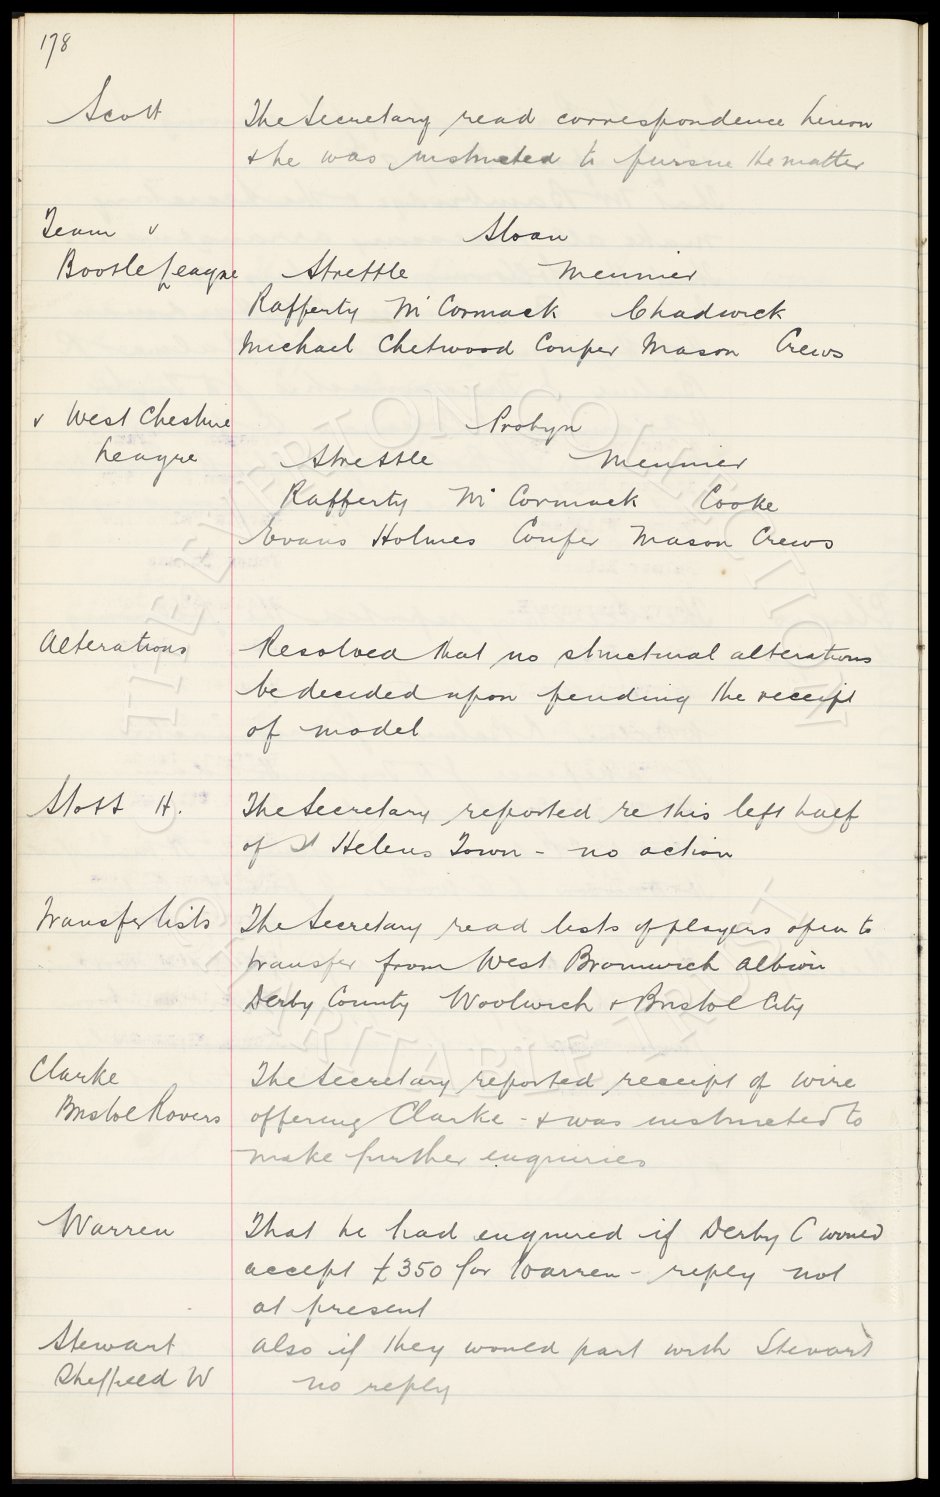 178
Scott The Secretary read correspondence hereon
& he was instructed to pursue the matter
Team v Sloan
Bootle League Strettle Meunier
Rafferty McCormack Chadwick
Michael Chetwood Couper Mason Crews
v West Cheshire Probyn
League Strettle Meunier
Rafferty Mc Cormack Cooke
Evans Holmes Couper Mason Crews
Alterations Resolved that no structural alterations
be decided upon pending the receipt
of model
Stott H. The Secretary reported re this left half
of St Helens Town - no action
Transfer lists The Secretary read lists of players open to
transfer from West Bromwich Albion
Derby County Woolwich & Bristol City
Clarke The Secretary reported receipt of wire
Bristol Rovers offering Clarke - & was instructed to
make further enquiries
Warren That he had enquired if Derby C would
accept £350 for Warren - reply not
at present
Stewart also if they would part with Stewart
Sheffield W no reply
THE EVERTON COLLECTION